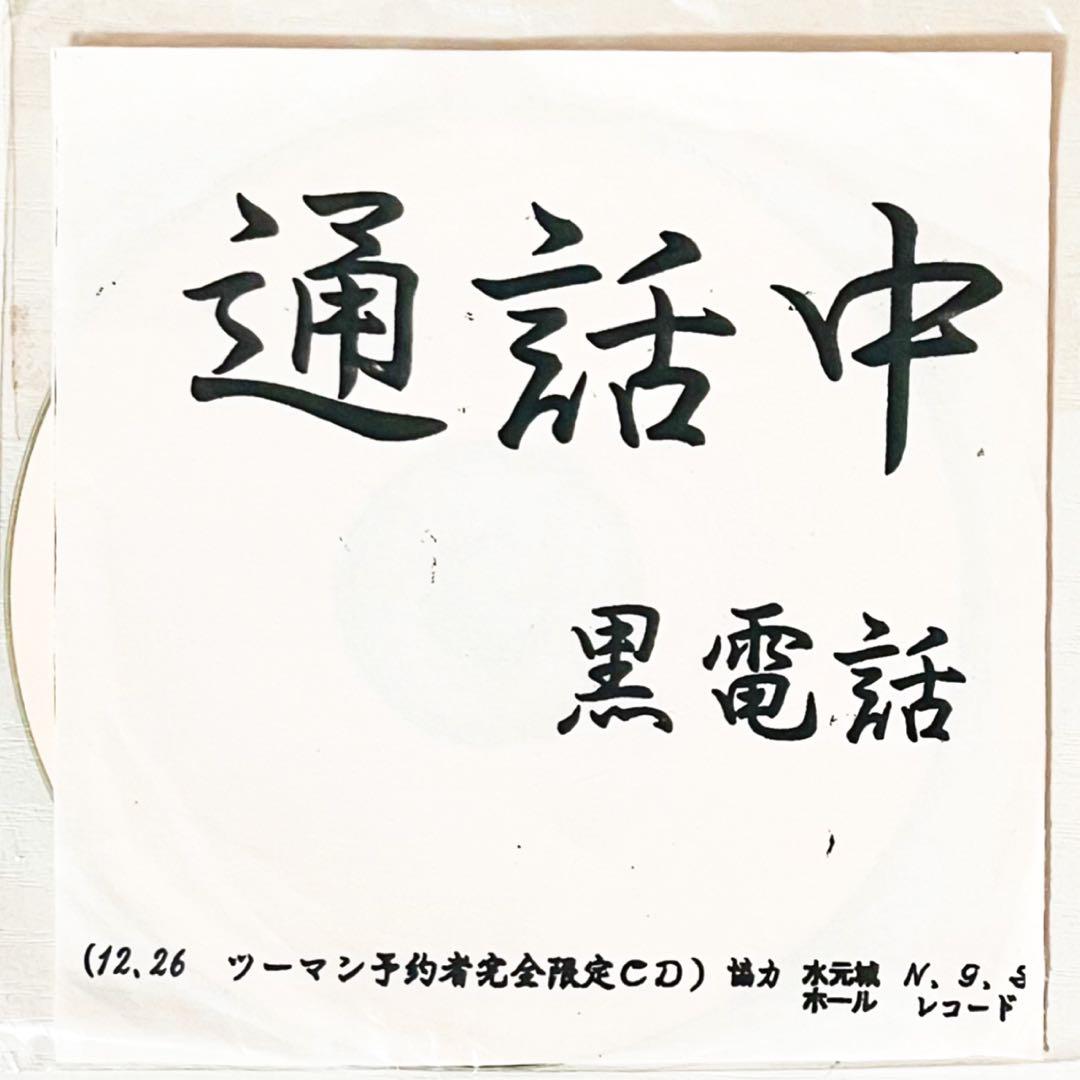 通話中
黒電話
(12、26 ツーマン予約者完全限定CD) 協力 水元城ホール N、G、S レコード